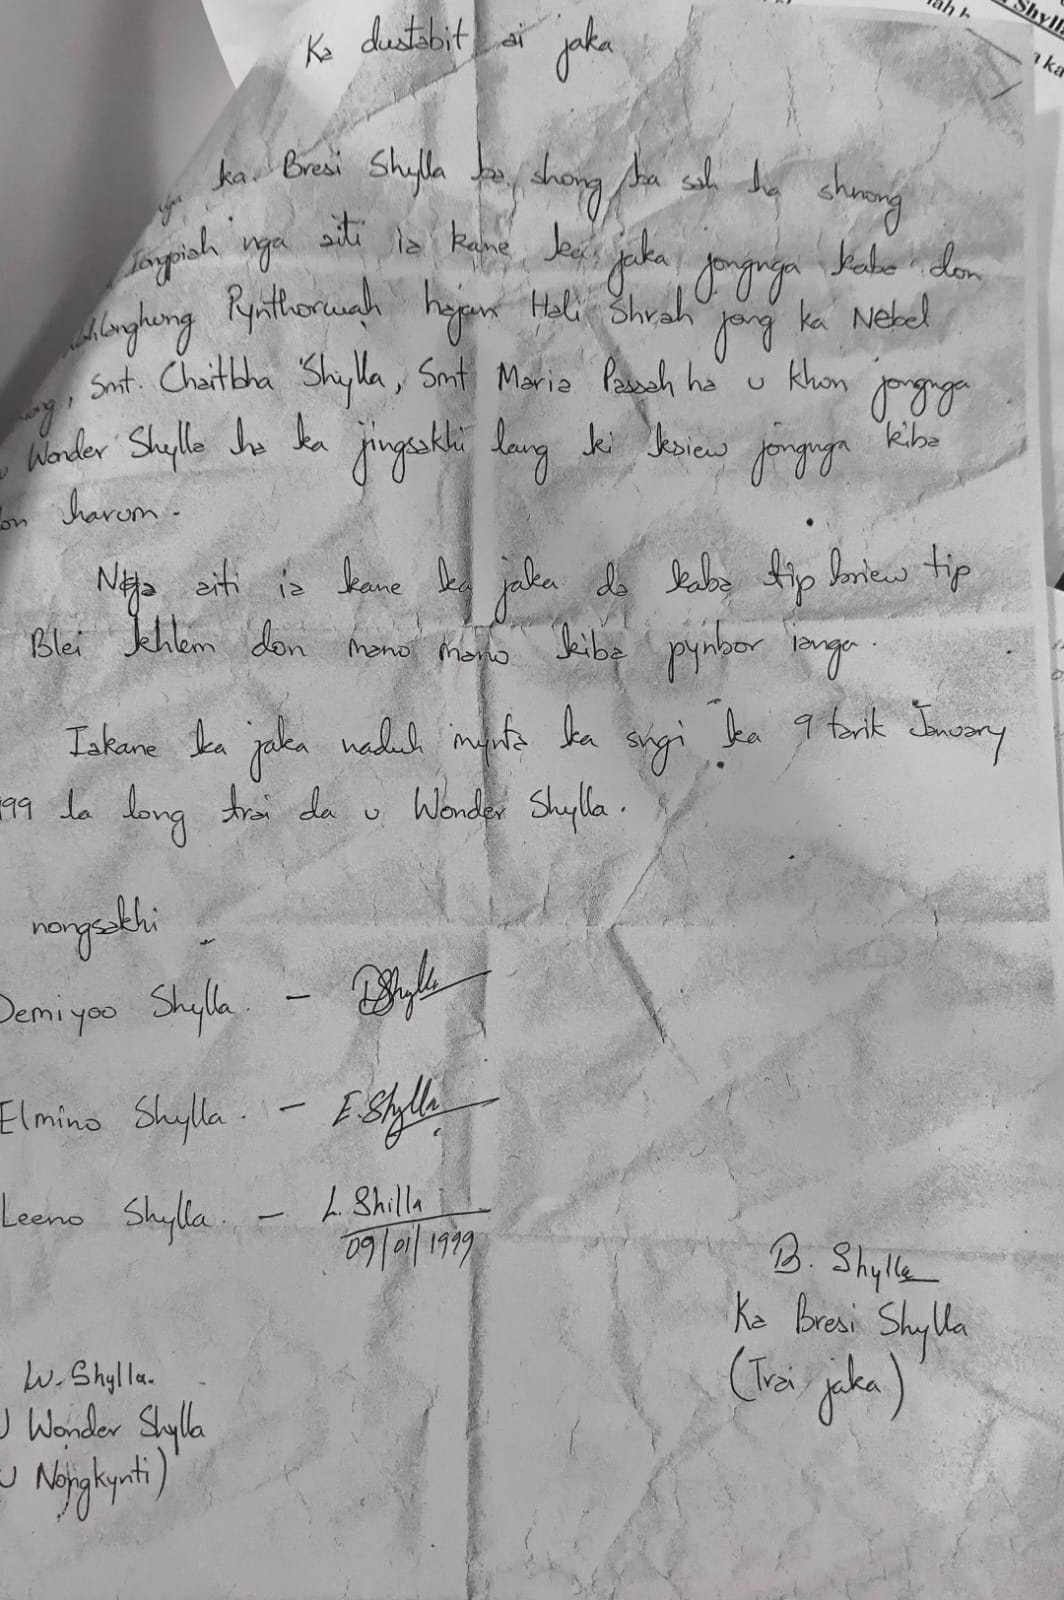 Ka dustabit ai jaka
nga ka. Bresi Shylla ba shong ba sah ha shnong
Iongpiah nga aiti ia kane ka jaka jongnga kaba don
Pynthorwah hajan Hali Shrah jong ka Nebel
Smt. Chaitbha Shylla, Smt Maria Passah ha u khon jongnga
u Wonder Shylla ha ka jingsakhi lang ki ksiew jongnga kiba
don harum.
Nga aiti ia kane ka jaka da kaba tip briew tip
Blei khlem don mano mano kiba pynbor ianga.
Iakane ka jaka naduh mynta ka sngi ka 9 tarik January
199 la long trai da u Wonder Shylla.
nongsakhi
Demiyoo Shylla. - DShylla
Elmino Shylla. - E.Shylla
Leeno Shylla. - L. Shilla
09/01/1999
B. Shylla
Ka Bresi Shylla
(Trai jaka)
W. Shylla.
U Wonder Shylla
U Nongkynti)
Shylla
ka